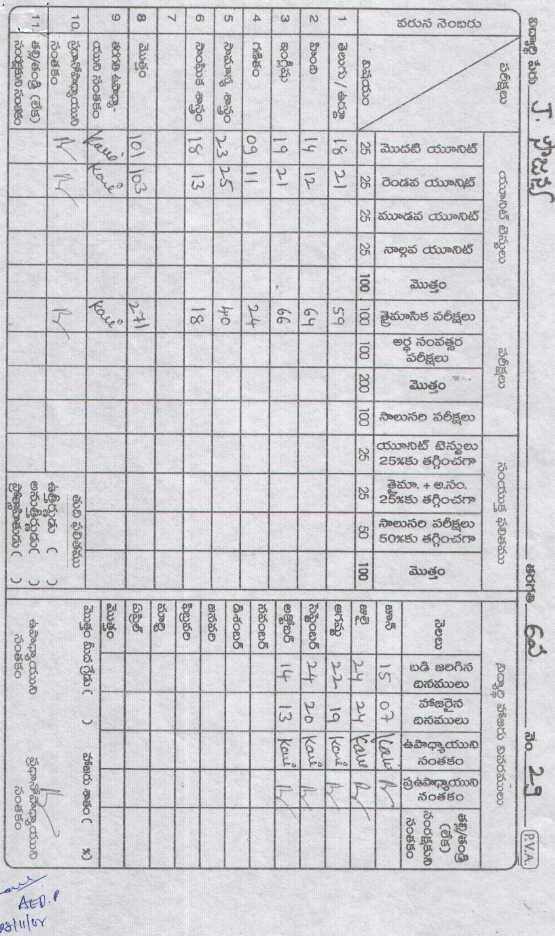 విద్యార్థి పేరు J. తరగతి 6వ నెం. 29 P.V.A.
వరుస నెంబరు 1 2 3 4 5 6 7 8 9 10. 11
పరీక్షలు విషయం తెలుగు / ఉర్దూ హిందీ ఇంగ్లీషు గణితం సామాన్య శాస్త్రం సాంఘిక శాస్త్రం మొత్తం తరగతి ఉపాధ్యా-యుని సంతకం ప్రధానోపాధ్యాయుని సంతకం తల్లి/తండ్రి (లేక) సంరక్షకుని సంతకం
యూనిట్ టెస్టులు
మొదటి యూనిట్ 25 18 14 19 09 23 18 101 Kavi
రెండవ యూనిట్ 25 21 12 21 11 25 13 103 Kavi
మూడవ యూనిట్ 25
నాల్గవ యూనిట్ 25
మొత్తం 100
పరీక్షలు
త్రైమాసిక పరీక్షలు 100 59 64 66 24 40 18 271 Kavi
అర్ధ సంవత్సర పరీక్షలు 100
మొత్తం 200
సాలుసరి పరీక్షలు 100
సంయుక్త ఫలితము
యూనిట్ టెస్టులు 25%కు తగ్గించగా 25
త్రైమా. + అ.సం. 25%కు తగ్గించగా 25
సాలుసరి పరీక్షలు 50%కు తగ్గించగా 50
మొత్తం 100
తుది ఫలితము
ఉత్తీర్ణుడు ( )
అనుత్తీర్ణుడు( )
ప్రోత్సాహితుడు ( )
విద్యార్థి హాజరు వివరములు
నెలలు జూన్ జులై ఆగష్టు సెప్టెంబర్ అక్టోబర్ నవంబర్ డిశంబర్ జనవరి ఫిబ్రవరి మార్చి ఏప్రిల్ మొత్తం
బడి జరిగిన దినములు 15 24 22 24 14
హాజరైన దినములు 07 24 19 20 13
ఉపాధ్యాయుని సంతకం Kavi Kavi Kavi Kavi Kavi
ప్రఉపాధ్యాయుని సంతకం
తల్లి/తండ్రి (లేక) సంరక్షకుని సంతకం
మొత్తం మీద గ్రేడు ( ) హాజరు శాతం ( %)
ఉపాధ్యాయుని సంతకం ప్రధానోపాధ్యాయుని సంతకం